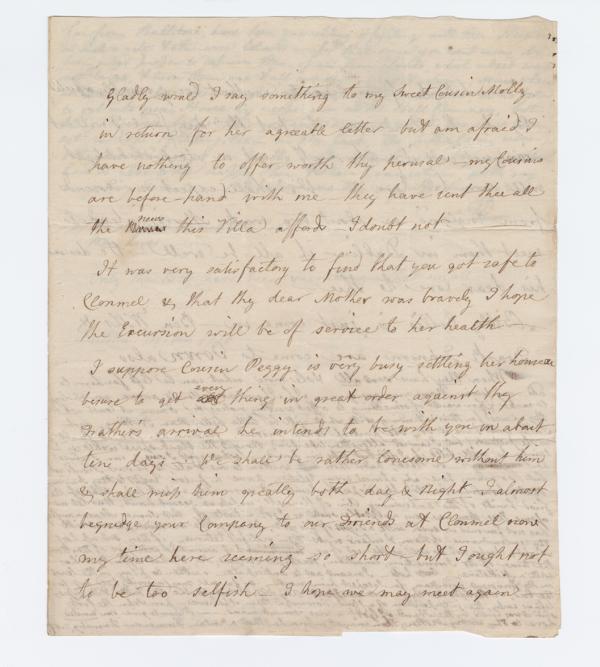 Gladly would I say something to my Sweet Cousin Molly
in return for her agreeable letter but am afraid I
have nothing to offer worth thy perusal – my Cousins
are before-hand with me – they have sent thee all
the news this Villa affords I doubt not
It was very satisfactory to find that you got safe to
Clonmel & that thy dear Mother was bravely I hope
the Excursion will be of service to her health –
I suppose Cousen Peggy is very busy settling her house
besure to get every thing in great order against thy
Father's arrival he intends to be with you in about
ten days we shall be rather lonesome without him
& shall miss him greatly both day & Night I almost
begrudge your Company to our Friends at Clonmel now
my time here seeming so short but I ought not
to be too selfish I hope we may meet again